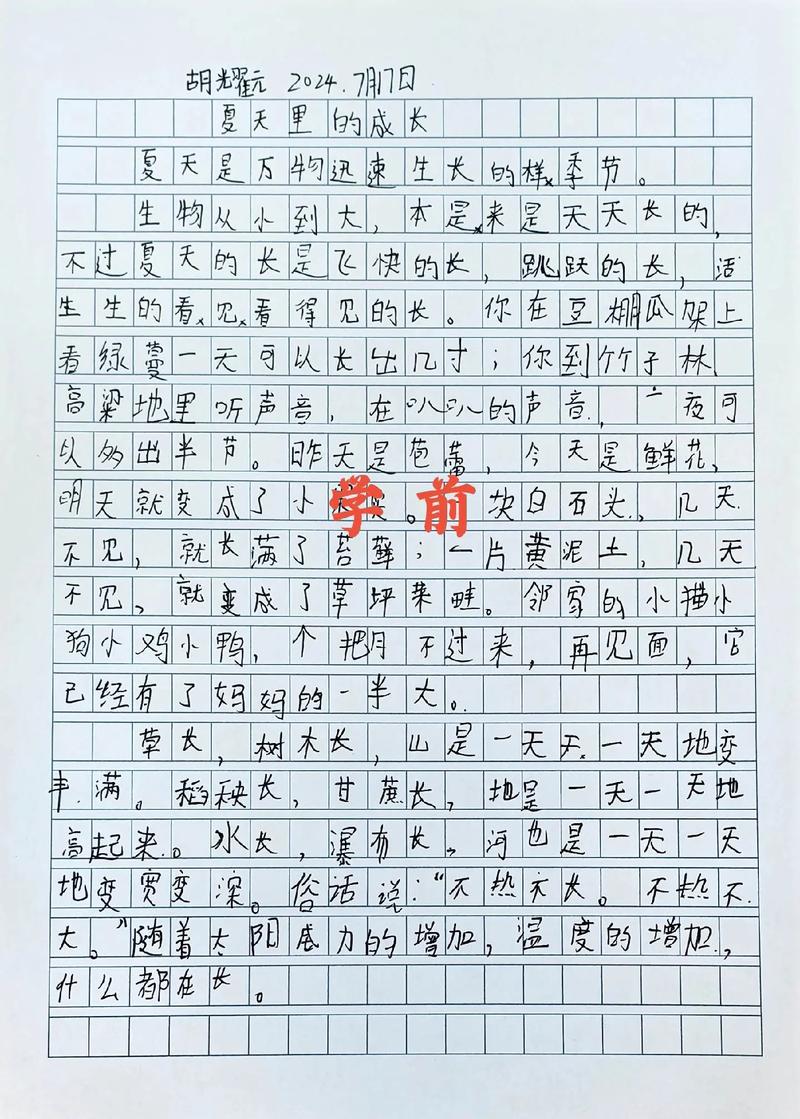 胡耀元 2024.7月17日
夏天里的成长
夏天是万物迅速生长的样季节。
生物从小到大，本是来是天天长的，
不过夏天的长是飞快的长，跳跃的长，活
生生的看见看得见的长。你在豆棚瓜架上
看绿蔓一天可以长出几寸；你到竹子林、
高粱地里听声音，在叭叭的声音，一夜可
以多出半节。昨天是苞蕾，今天是鲜花，
明天就变成了小 。 块白石头，几天
不见，就长满了苔藓；一片黄泥土，几天
不见，就变成了草坪菜畦。邻家的小猫小
狗小鸡小鸭，个把月不过来，再见面，它
已经有了妈妈的一半大。
草长，树木长，山是一天天一天地变
丰满。稻秧长，甘蔗长，地是一天一天地
高起来。水长，瀑布长，河也是一天一天
地变宽变深。俗话说：“不热不长。不热不
大。”随着太阳威力的增加，温度的增加，
什么都在长。
学前